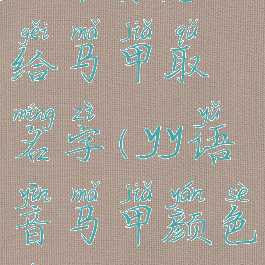 gěi mǎ jiǎ qǔ
给马甲取
míng zì yǔ
名字(yy语
yīn mǎ jiǎ yán sè
音马甲颜色